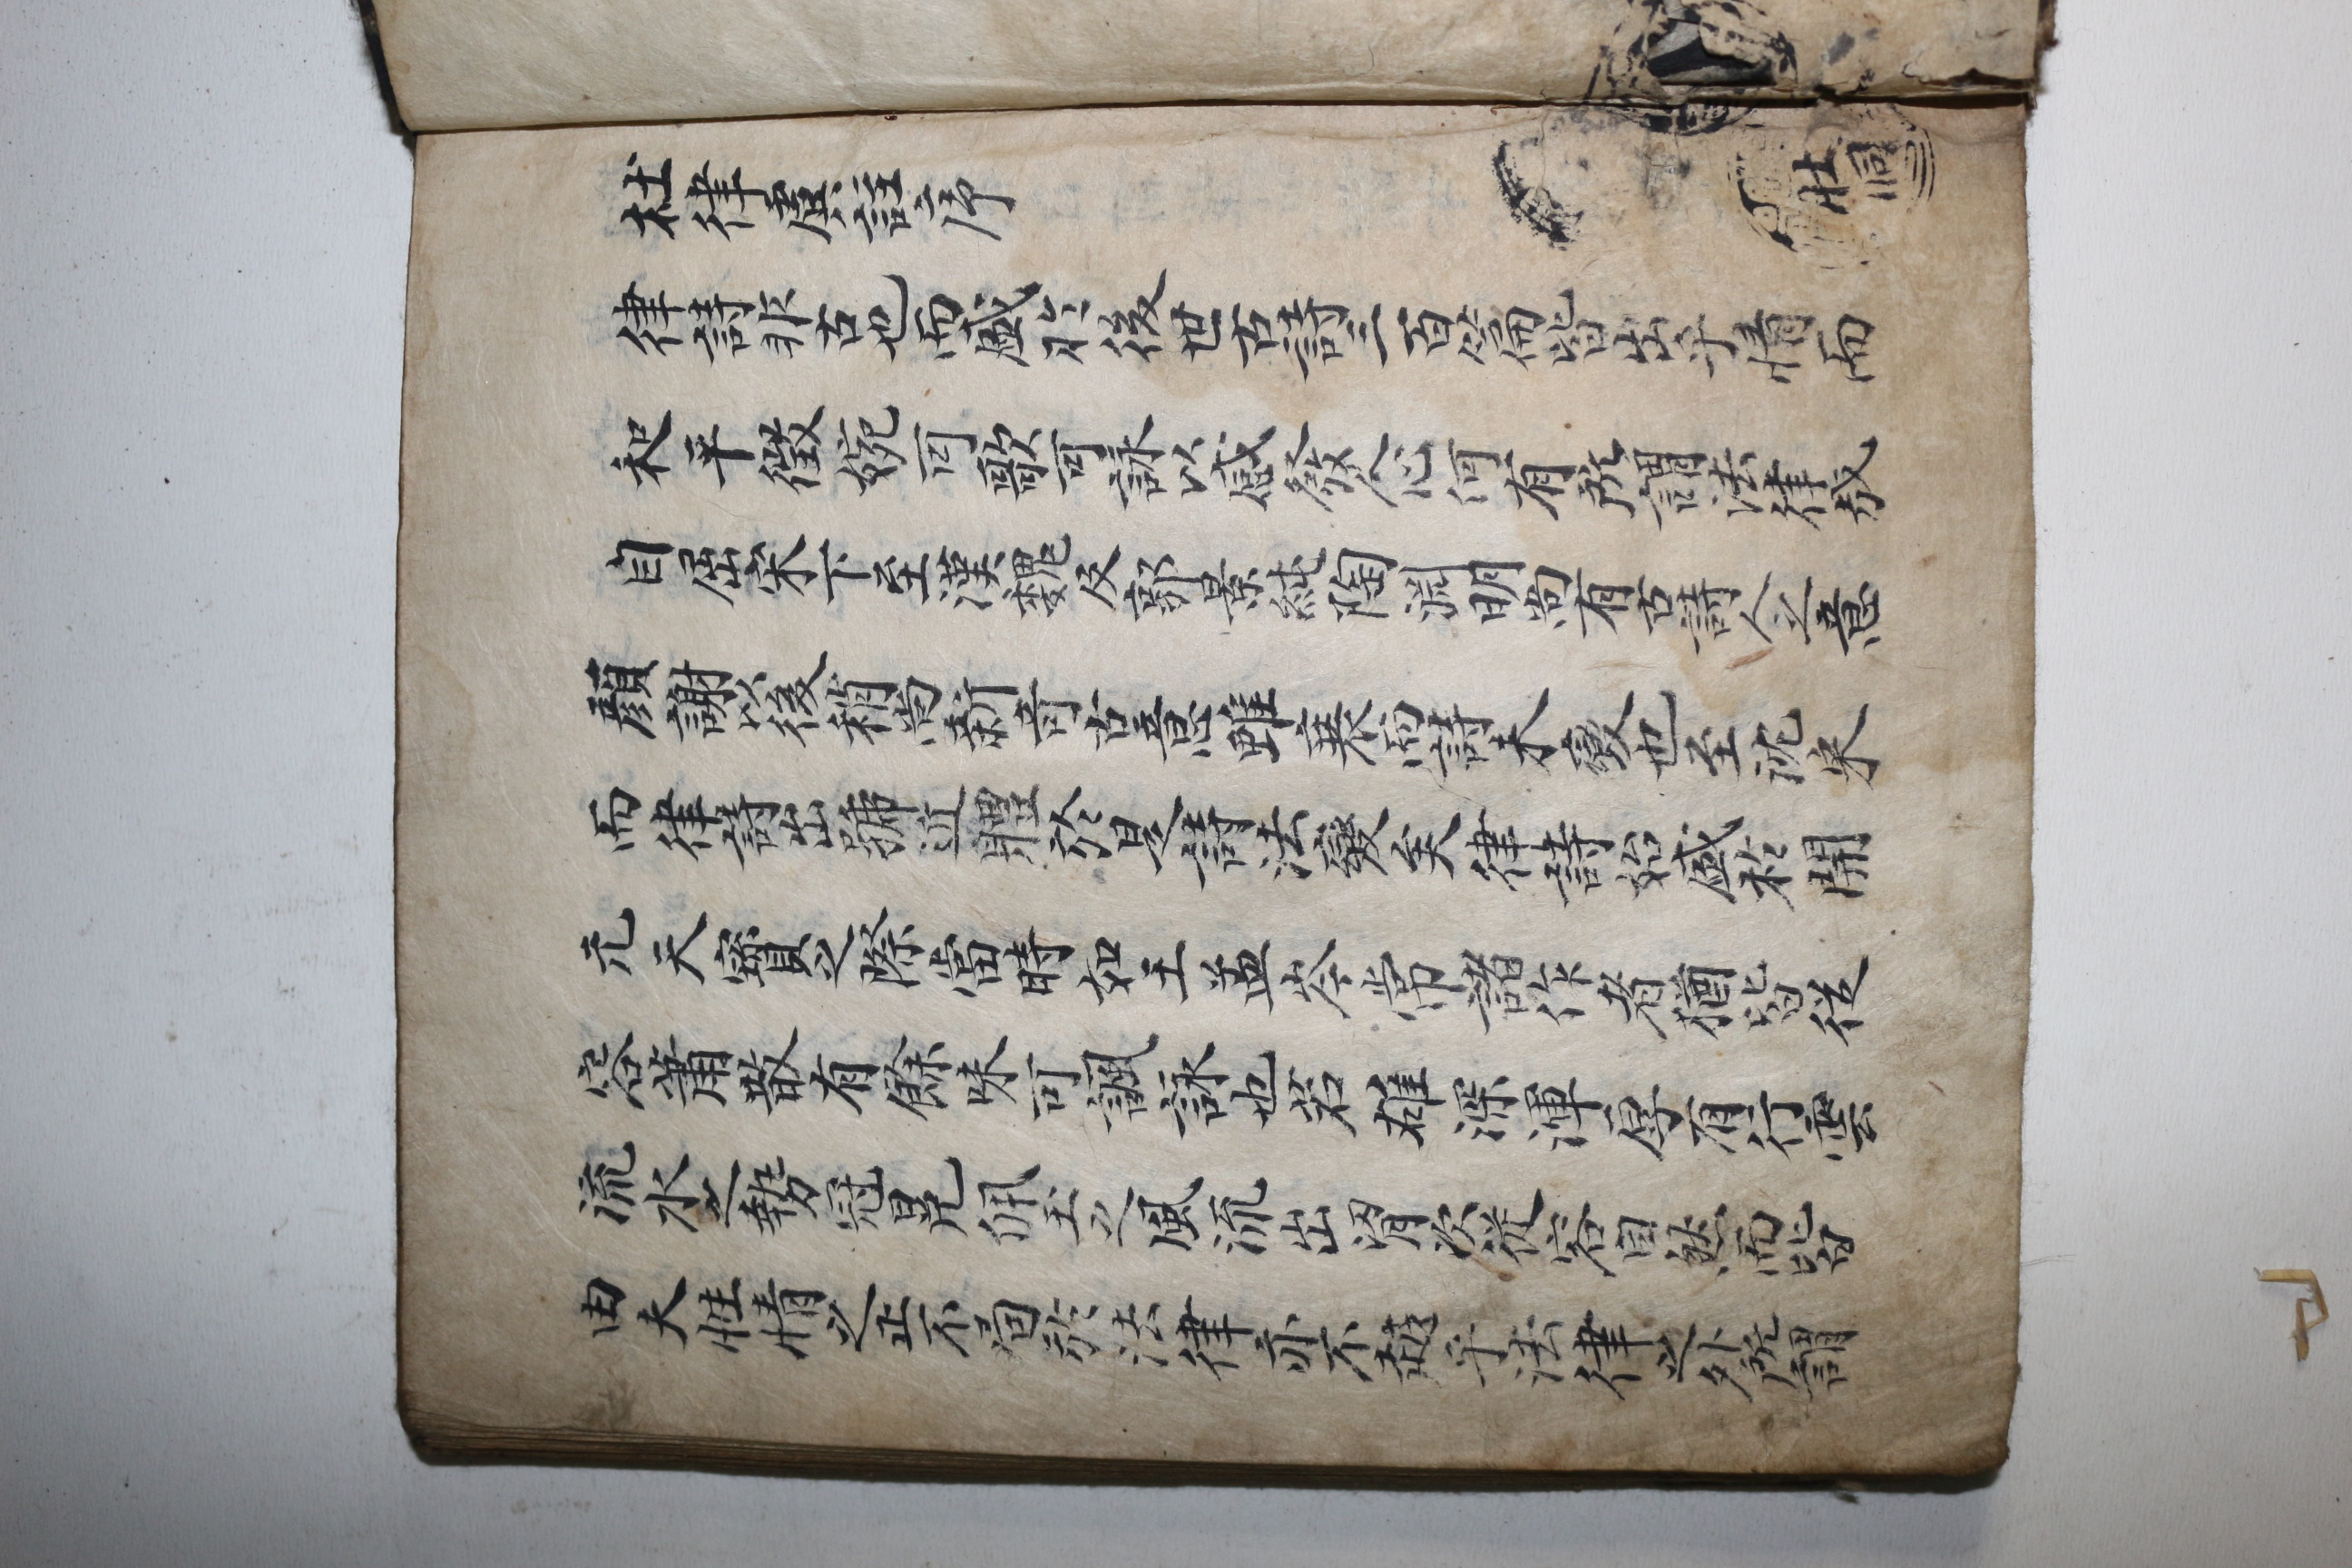 杜律虞註序
律詩非古也而盛於後世古詩三百篇皆出乎情而
和平微婉可歌可詠以感發人心何有所謂法律哉
自屈宋下至漢魏及郭景純陶淵明尚有古詩人之意
顏謝以後稍尚新奇古意雖衰而詩未變也至沈宋
而律詩出號近體於是詩法變矣律詩始盛於開
元天寶之際當時如王孟岑韋諸作者猶皆從
容蕭散有餘味可諷詠也若雄深渾厚有行雲
流水之勢冠冕佩玉之風流出胸次從容自然而皆
由夫性情之正不局於法律亦不越乎法律之外所謂